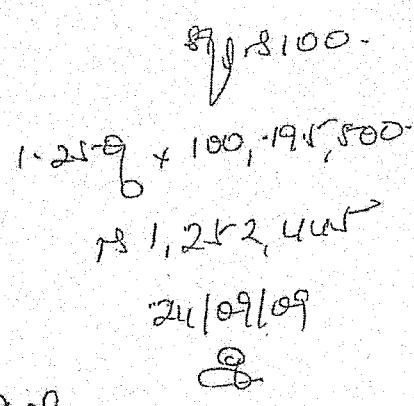 Rs 100.
1.25% x 100,195,500
Rs 1,252,445
24/09/09